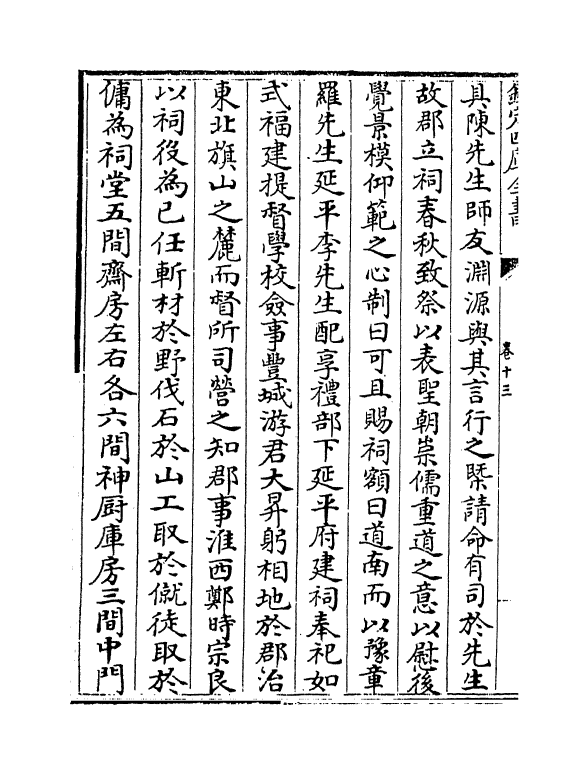 欽定四庫全書
卷十三
具陳先生師友淵源與其言行之槩請命有司於先生
故郡立祠春秋致祭以表聖朝崇儒重道之意以慰後
覺景模仰範之心制曰可且賜祠額曰道南而以豫章
羅先生延平李先生配享禮部下延平府建祠奉祀如
式福建提督學校僉事豐城游君大昇躬相地於郡治
東北旗山之麓而督所司營之知郡事淮西鄭時宗良
以祠役為已任斬材於野伐石於山工取於僦徒取於
傭為祠堂五間齋房左右各六間神厨庫房三間中門